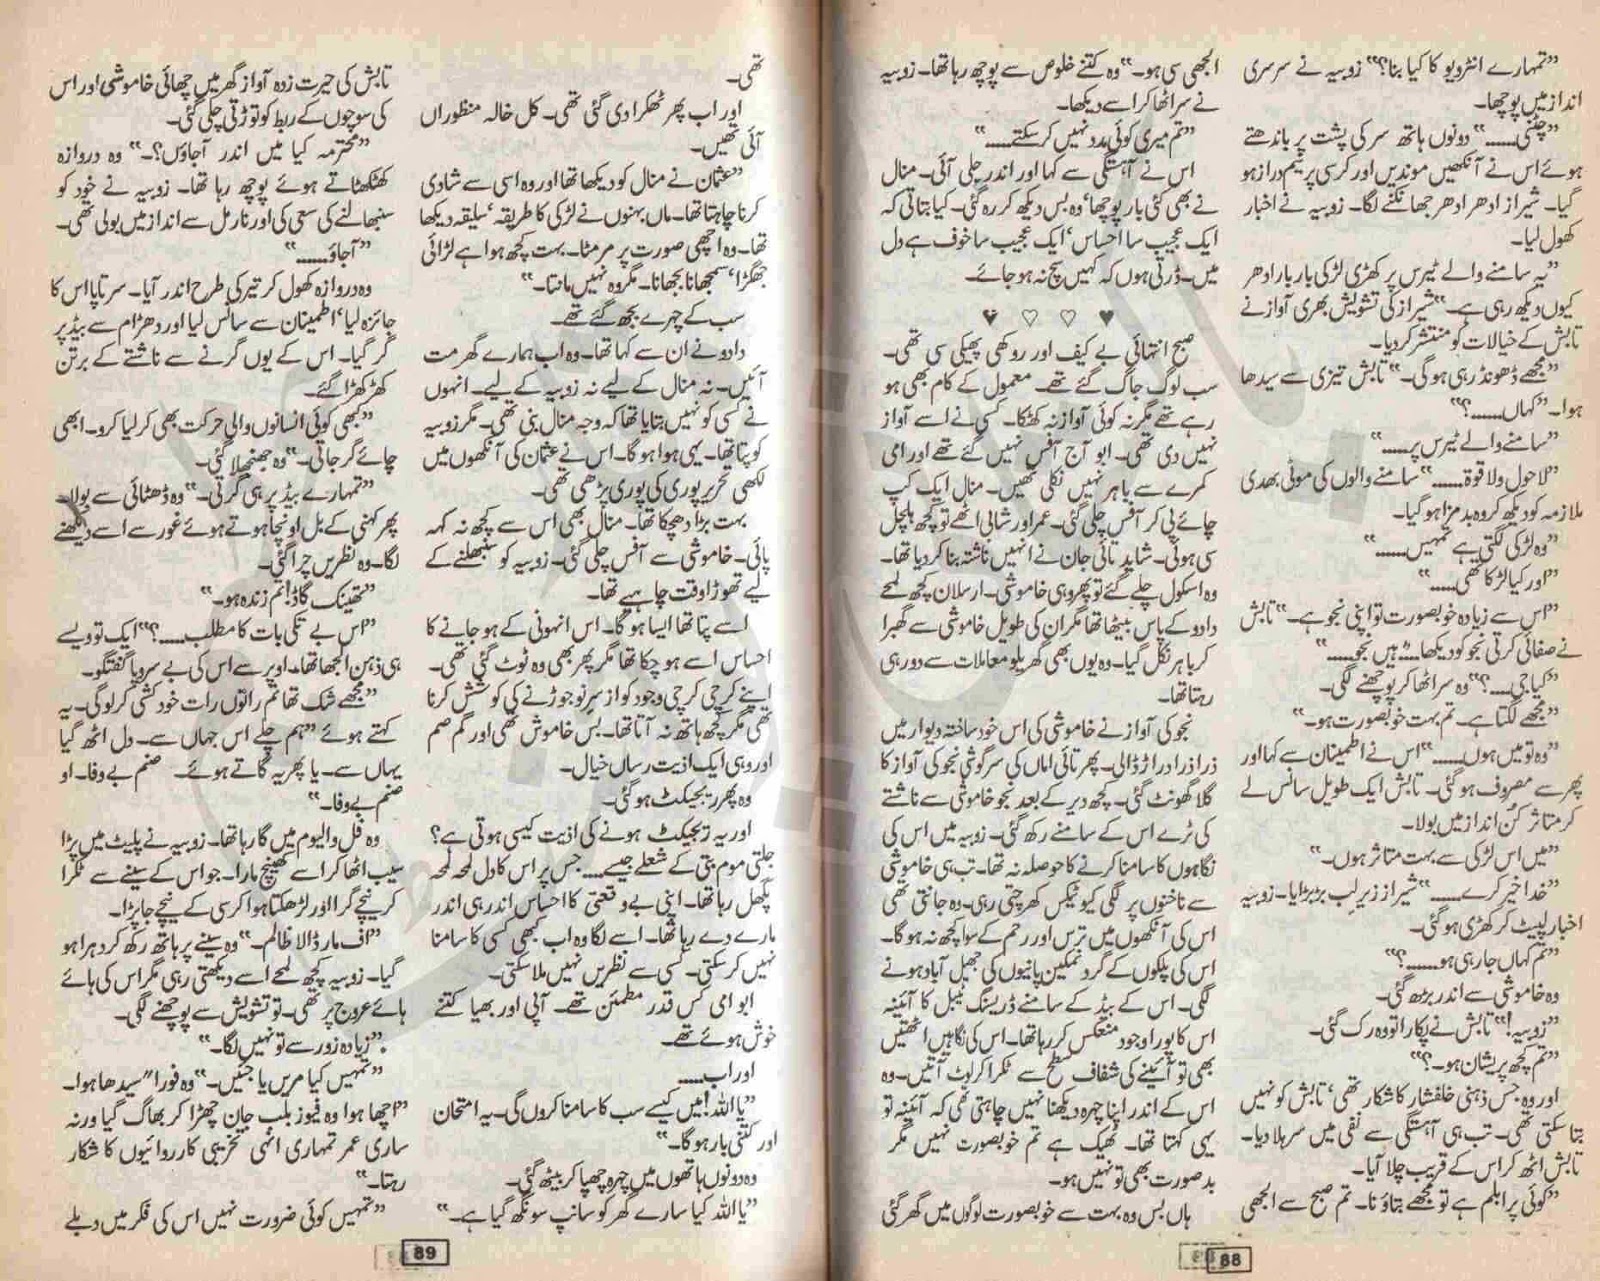 ”تمہارے انٹرویو کا کیا بنا؟“ زوبیہ نے سرسری
انداز میں پوچھا۔
”چٹنی......“ دونوں ہاتھ سر کی پشت پر باندھتے
ہوئے اس نے آنکھیں موندیں اور کرسی پر نیم دراز ہو
گیا۔ شیراز ادھر ادھر جھانکنے لگا۔ زوبیہ نے اخبار
کھول لیا۔
”یہ سامنے والے ٹیرس پر کھڑی لڑکی بار بار ادھر
کیوں دیکھ رہی ہے۔“ شیراز کی تشویش بھری آواز نے
تابش کے خیالات کو منتشر کر دیا۔
”مجھے ڈھونڈ رہی ہو گی۔“ تابش تیزی سے سیدھا
ہوا۔ ”کہاں......؟“
”سامنے والے ٹیرس پر......“
”لاحول ولاقوة......“ سامنے والوں کی موٹی بھدی
ملازمہ کو دیکھ کر وہ بدمزا ہو گیا۔
”وہ لڑکی لگتی ہے تمہیں......“
”اور کیا لڑکا تھی......“
”اس سے زیادہ خوبصورت تو اپنی نجو ہے۔“ تابش
نے صفائی کرتی نجو کو دیکھا...... ”ہیں نجو......“
”کیا جی......؟“ وہ سر اٹھا کر پوچھنے لگی۔
”مجھے لگتا ہے۔ تم بہت خوبصورت ہو۔“
”وہ تو میں ہوں......“ اس نے اطمینان سے کہا اور
پھر سے مصروف ہو گئی۔ تابش ایک طویل سانس لے
کر متاثر کُن انداز میں بولا۔
”میں اس لڑکی سے بہت متاثر ہوں۔“
”خدا خیر کرے......“ شیراز زیرِ لب بڑبڑایا۔ زوبیہ
اخبار لپیٹ کر کھڑی ہو گئی۔
”تم کہاں جا رہی ہو......؟“
وہ خاموشی سے اندر بڑھ گئی۔
”زوبیہ!“ تابش نے پکارا تو وہ رک گئی۔
”تم کچھ پریشان ہو۔؟“
اور وہ جس ذہنی خلفشار کا شکار تھی‘ تابش کو نہیں
بتا سکتی تھی۔ تب ہی آہستگی سے نفی میں سر ہلا دیا۔
تابش اٹھ کر اس کے قریب چلا آیا۔
”کوئی پرابلم ہے تو مجھے بتاؤ نا۔ تم صبح سے الجھی
الجھی سی ہو۔“ وہ کتنے خلوص سے پوچھ رہا تھا۔ زوبیہ
نے سر اٹھا کر اسے دیکھا۔
”تم میری کوئی مدد نہیں کر سکتے......“
اس نے آہستگی سے کہا اور اندر چلی آئی۔ منال
نے بھی کئی بار پوچھا‘ وہ بس دیکھ کر رہ گئی۔ کیا بتاتی کہ
ایک عجیب سا احساس‘ ایک عجیب سا خوف ہے دل
میں۔ ڈرتی ہوں کہ کہیں سچ نہ ہو جائے۔
♥ ♡ ♡ ♥
صبح انتہائی بے کیف اور روکھی پھیکی سی تھی۔
سب لوگ جاگ گئے تھے۔ معمول کے کام بھی ہو
رہے تھے مگر نہ کوئی آواز نہ کھٹکا۔ کسی نے اسے آواز
نہیں دی تھی۔ ابو آج آفس نہیں گئے تھے اور امی
کمرے سے باہر نہیں نکلی تھیں۔ منال ایک کپ
چائے پی کر آفس چلی گئی۔ عمر اور شابی اٹھے تو کچھ ہلچل
سی ہوئی۔ شاید تائی جان نے انہیں ناشتہ بنا کر دیا تھا۔
وہ اسکول چلے گئے تو پھر وہی خاموشی۔ ارسلان کچھ لمحے
دادو کے پاس بیٹھا تھا مگر ان کی طویل خاموشی سے گھبرا
کر باہر نکل گیا۔ وہ یوں بھی گھریلو معاملات سے دور ہی
رہتا تھا۔
نجو کی آواز نے خاموشی کی اس خود ساختہ دیوار میں
ذرا ذرا دراڑ ڈالی۔ پھر تائی اماں کی سرگوشی نجو کی آواز کا
گلا گھونٹ گئی۔ کچھ دیر کے بعد نجو خاموشی سے ناشتے
کی ٹرے اس کے سامنے رکھ گئی۔ زوبیہ میں اس کی
نگاہوں کا سامنا کرنے کا حوصلہ نہ تھا۔ تب ہی خاموشی
سے ناخنوں پر لگی کیوٹیکس کھرچتی رہی۔ وہ جانتی تھی
اس کی آنکھوں میں ترس اور رحم کے سوا کچھ نہ ہو گا۔
اس کی پلکوں کے گرد نمکین پانیوں کی جھیل آباد ہونے
لگی۔ اس کے بیڈ کے سامنے ڈریسنگ ٹیبل کا آئینہ
اس کا پورا وجود منعکس کر رہا تھا۔ اس کی نگاہیں اٹھتیں
بھی تو آئینے کی شفاف سطح سے ٹکرا کر لوٹ آتیں۔ وہ
اس کے اندر اپنا چہرہ دیکھنا نہیں چاہتی تھی کہ آئینہ تو
یہی کہتا تھا۔ ٹھیک ہے تم خوبصورت نہیں مگر
بدصورت بھی تو نہیں ہو۔
ہاں بس وہ بہت سے خوبصورت لوگوں میں گھر گئی
88
تھی۔
اور اب پھر ٹھکرا دی گئی تھی۔ کل خالہ منظوراں
آئی تھیں۔
”عثمان نے منال کو دیکھا تھا اور وہ اسی سے شادی
کرنا چاہتا تھا۔ ماں بہنوں نے لڑکی کا طریقہ‘ سلیقہ دیکھا
تھا۔ وہ اچھی صورت پر مر مٹا۔ بہت کچھ ہوا ہے لڑائی
جھگڑا‘ سمجھانا بجھانا۔ مگر وہ نہیں مانتا۔“
سب کے چہرے بجھ گئے تھے۔
دادو نے ان سے کہا تھا۔ وہ اب ہمارے گھر مت
آئیں۔ نہ منال کے لیے نہ زوبیہ کے لیے۔ انہوں
نے کسی کو نہیں بتایا تھا کہ وجہ منال بنی تھی۔ مگر زوبیہ
کو پتا تھا۔ یہی ہوا ہو گا۔ اس نے عثمان کی آنکھوں میں
لکھی تحریر پوری کی پوری پڑھی تھی۔
بہت بڑا دھچکا تھا۔ منال بھی اس سے کچھ نہ کہہ
پائی۔ خاموشی سے آفس چلی گئی۔ زوبیہ کو سنبھلنے کے
لیے تھوڑا وقت چاہیے تھا۔
اسے پتا تھا ایسا ہو گا۔ اس انہونی کے ہو جانے کا
احساس اسے ہو چکا تھا مگر پھر بھی وہ ٹوٹ گئی تھی۔
اپنے کرچی کرچی وجود کو از سرِ نو جوڑنے کی کوشش کرنا
تھی مگر کچھ ہاتھ نہ آتا تھا۔ بس خاموش تھی اور گم صم
اور وہی ایک اذیت رساں خیال۔
وہ پھر ریجیکٹ ہو گئی۔
اور یہ ریجیکٹ ہونے کی اذیت کیسی ہوتی ہے؟
جلتی موم بتی کے شعلے جیسے...... جس پر اس کا دل لمحہ لمحہ
پگھل رہا تھا۔ اپنی بے وقعتی کا احساس اندر ہی اندر
مارے دے رہا تھا۔ اسے لگا وہ اب کبھی کسی کا سامنا
نہیں کر سکتی۔ کسی سے نظریں نہیں ملا سکتی۔
ابو امی کس قدر مطمئن تھے۔ آپی اور بھیا کتنے
خوش ہوئے تھے۔
اور اب......
”یا اللہ! میں کیسے سب کا سامنا کروں گی۔ یہ امتحان
اور کتنی بار ہو گا۔“
وہ دونوں ہاتھوں میں چہرہ چھپا کر بیٹھ گئی۔
”یا اللہ کیا سارے گھر کو سانپ سونگھ گیا ہے۔“
تابش کی حیرت زدہ آواز گھر میں چھائی خاموشی اور اس
کی سوچوں کے ربط کو توڑتی چلی گئی۔
”محترمہ کیا میں اندر آجاؤں؟۔“ وہ دروازہ
کھٹکھٹاتے ہوئے پوچھ رہا تھا۔ زوبیہ نے خود کو
سنبھالنے کی سعی کی اور نارمل سے انداز میں بولی تھی۔
”آجاؤ......“
وہ دروازہ کھول کر تیر کی طرح اندر آیا۔ سرتاپا اس کا
جائزہ لیا‘ اطمینان سے سانس لیا اور دھڑام سے بیڈ پر
گر گیا۔ اس کے یوں گرنے سے ناشتے کے برتن
کھڑکھڑا گئے۔
”کبھی کوئی انسانوں والی حرکت بھی کر لیا کرو۔ ابھی
چائے گر جاتی۔“ وہ جھنجھلا گئی۔
”تمہارے بیڈ پر ہی گرتی۔“ وہ ڈھٹائی سے بولا۔
پھر کہنی کے بل اونچا ہوتے ہوئے غور سے اسے دیکھنے
لگا۔ وہ نظریں چرا گئی۔
”تھینک گاڈ! تم زندہ ہو۔“
”اس بے تکی بات کا مطلب......؟“ ایک تو ویسے
ہی ذہن الجھا تھا۔ اوپر سے اس کی بے سروپا گفتگو۔
”مجھے شک تھا تم راتوں رات خودکشی کر لو گی۔ یہ
کہتے ہوئے ”ہم چلے اس جہاں سے۔ دل اٹھ گیا
یہاں سے۔ یا پھر یہ گاتے ہوئے۔ صنم بے وفا۔ او
صنم بے وفا۔“
وہ فل والیوم میں گا رہا تھا۔ زوبیہ نے پلیٹ میں پڑا
سیب اٹھا کر اسے کھینچ مارا۔ جو اس کے سینے سے ٹکرا
کر نیچے گرا اور لڑھکتا ہوا کرسی کے نیچے جا پڑا۔
”اف مار ڈالا ظالم۔“ وہ سینے پر ہاتھ رکھ کر دہرا ہو
گیا۔ زوبیہ کچھ لمحے اسے دیکھتی رہی مگر اس کی ہائے
ہائے عروج پر تھی۔ تو تشویش سے پوچھنے لگی۔
”زیادہ زور سے تو نہیں لگا۔“
”تمہیں کیا مریں یا جئیں۔“ وہ فوراً سیدھا ہوا۔
”اچھا ہوا وہ فیوز بلب جان چھڑا کر بھاگ گیا ورنہ
ساری عمر تمہاری انہی تخریبی کارروائیوں کا شکار
رہتا۔“
”تمہیں کوئی ضرورت نہیں اس کی فکر میں دبلے
89